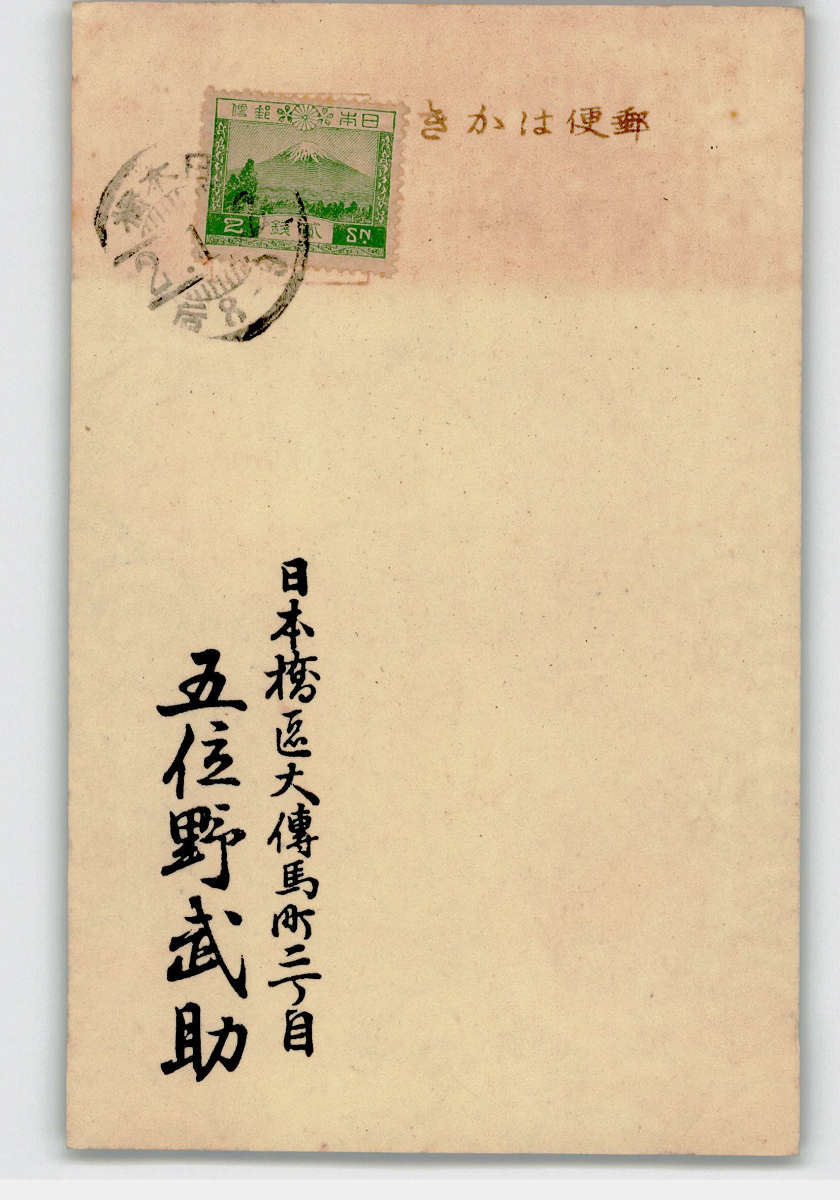 郵便はかき
日本郵便
2 貳銭 SN
日本橋
日本橋區大傳馬町二丁目
五位野武助